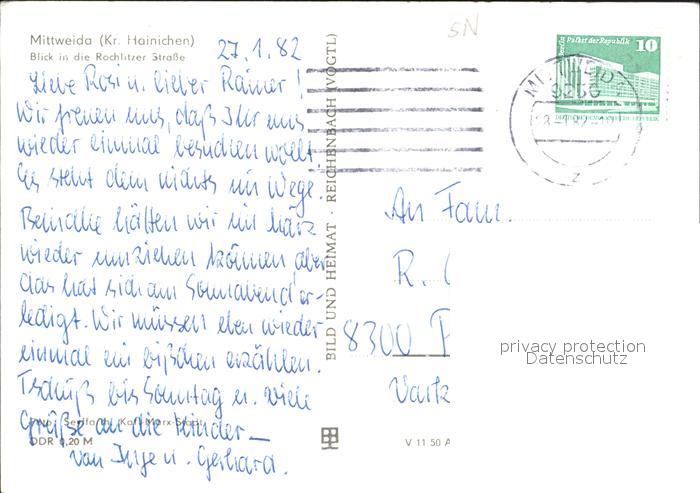 Mittweida (Kr. Hainichen)
Blick in die Rochlitzer Straße
27.1.82
Liebe Rosi u. lieber Rainer!
Wir freuen uns, daß Ihr uns
wieder einmal besuchen wollt.
Es steht dem nichts im Wege.
Beinahe hätten wir im März
wieder umziehen können, aber
das hat sich am Sonnabend er-
ledigt. Wir müssen eben wieder
einmal ein bißchen erzählen.
Tschüß bis Sonntag u. viele
Grüße an die Kinder
von Inge u. Gerhard.
Karl-Marx-Stadt
DDR 0,20 M
BILD UND HEIMAT · REICHENBACH (VOGTL)
V 11 50 A
SN
Berlin Palast der Republik
10
MITTWEIDA
9250
An Fam.
R.
8300 P
privacy protection
Datenschutz